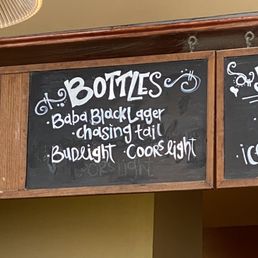 BOTTLES
· Baba Black Lager
· chasing tail
· Bud light · Coors light